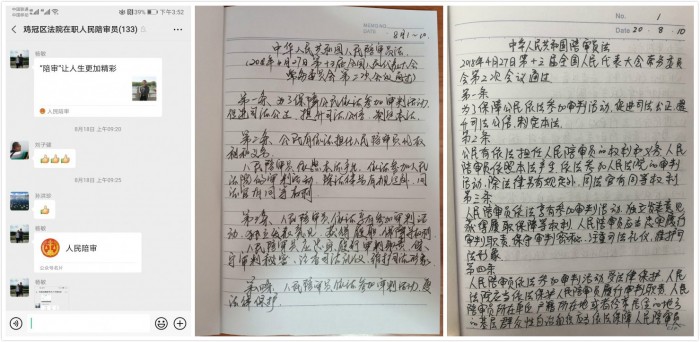 中国联通
中国移动
39%
下午3:52
鸡冠区法院在职人民陪审员(133)
杨敏
“陪审”让人生更加精彩
人民陪审
8月18日 上午09:20
孙洪娇
8月18日 上午09:25
杨敏
人民陪审
杨敏
MEMO NO.
DATE
8月1—10.
中华人民共和国人民陪审员法.
(2018年4月27日第十三届全国人民代表大会
常务委员会第二次会议通过)
第一条、为了保障公民依法参加审判活动,
促进司法公正,提升司法公信,制定本法.
第二条、公民有依法担任人民陪审员的权
利和义务.
人民陪审员依照本法产生,依法参加人民
法院的审判活动,除法律另有规定外,同
法官有同等权利
第三条、人民陪审员依法享有参加审判活
动、独立发表意见、获得履职保障等权利
第四条、人民陪审员依法参加审判活动,受
法律保护.
No. 1
Date 20 · 8 · 10
中华人民共和国陪审员法
2018年4月27日第十三届全国人民代表大会常务委员
会第二次会议通过
第一条
为了保障公民依法参加审判活动,促进司法公正,提
升司法公信,制定本法.
第2条
公民有依法担任人民陪审员的权利和义务.人民
陪审员依照本法产生,依法参加人民法院的审判
活动,除法律另有规定外,同法官有同等权利
第三条
人民陪审员依法享有参加审判活动、独立发表意见
、获得履职保障等权利.人民陪审员应当忠实履行
审判职责,保守审判秘密,注重司法礼仪,维护司
法形象
第四条
人民陪审员依法参加审判活动受法律保护.人民
法院应当依法保障人民陪审员履行审判职责.人民
陪审员所在单位、户籍所在地或者经常居住的地
的基层群众性自治组织应当依法保障人民陪审员